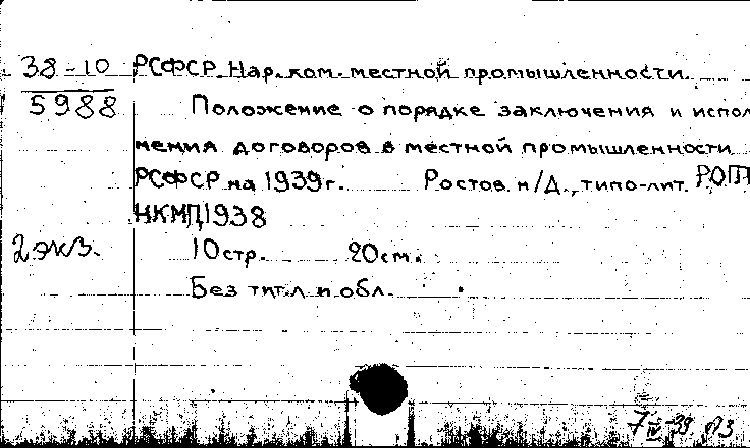 38-10 РСФСР. Нар. ком. местной промышленности.
5988 Положение о порядке заключения и испол
нения договоров в местной промышленности
РСФСР на 1939г. Ростов н/Д., типо-лит. РОТИ
НКМП, 1938
2 экз. 10стр. 20см.
Без тит. л. и обл.